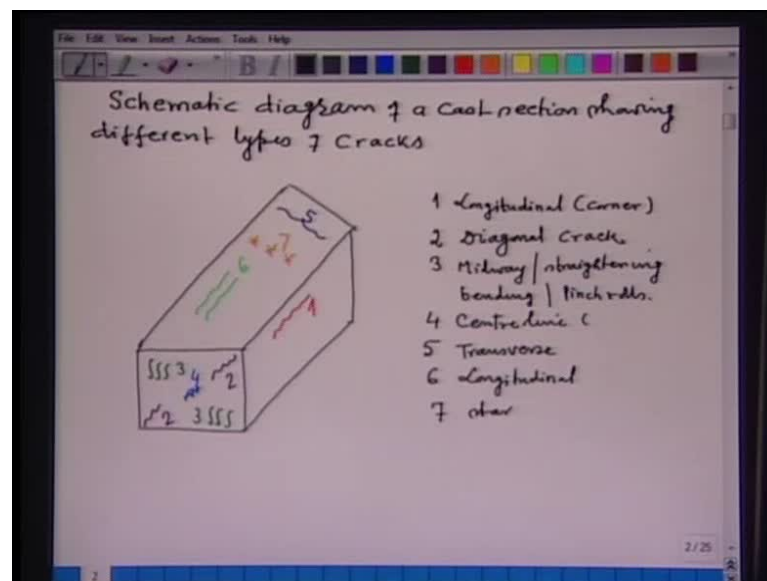 File Edit View Insert Actions Tools Help
B I
Schematic diagram of a cast section showing
different types of cracks
5
7
6
1
3 4 2
2 3
1 Longitudinal (corner)
2 Diagonal Crack
3 Midway / straightening
bending / Pinch rolls.
4 Centreline C
5 Transverse
6 Longitudinal
7 star
2 / 25
2